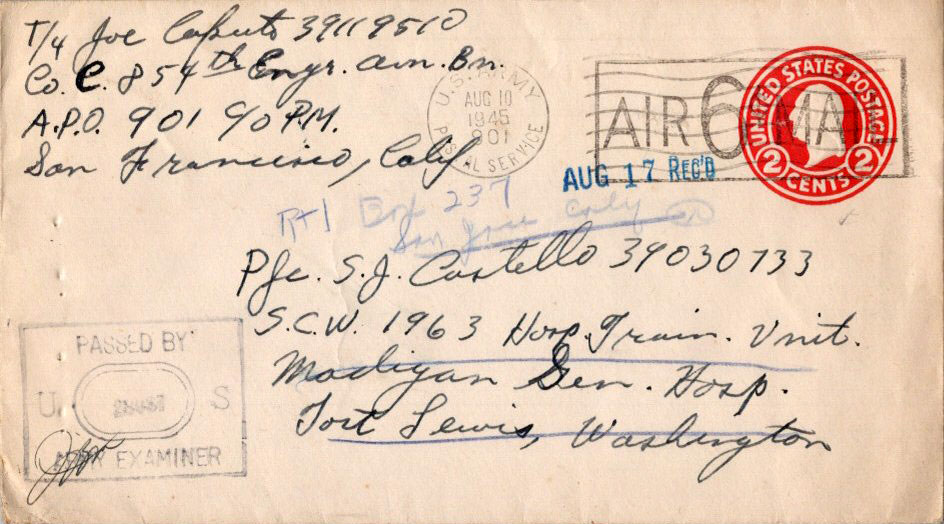 T/4 Joe Caputo 39119510
Co. C. 854th Engr. avn. Bn.
A.P.O. 901 c/o P.M.
San Francisco, Calif
U.S. ARMY
AUG 10
1945
901
POSTAL SERVICE
AIR 6¢ MAIL
UNITED STATES POSTAGE
2 CENTS 2
AUG 17 REC'D
Rt 1 Box 237
San Jose Calif
Pfc. S.J. Costello 39030733
S.C.W. 1963 Hosp. Train. Unit.
Madigan Gen. Hosp.
Fort Lewis, Washington
PASSED BY
U. S
ARMY EXAMINER